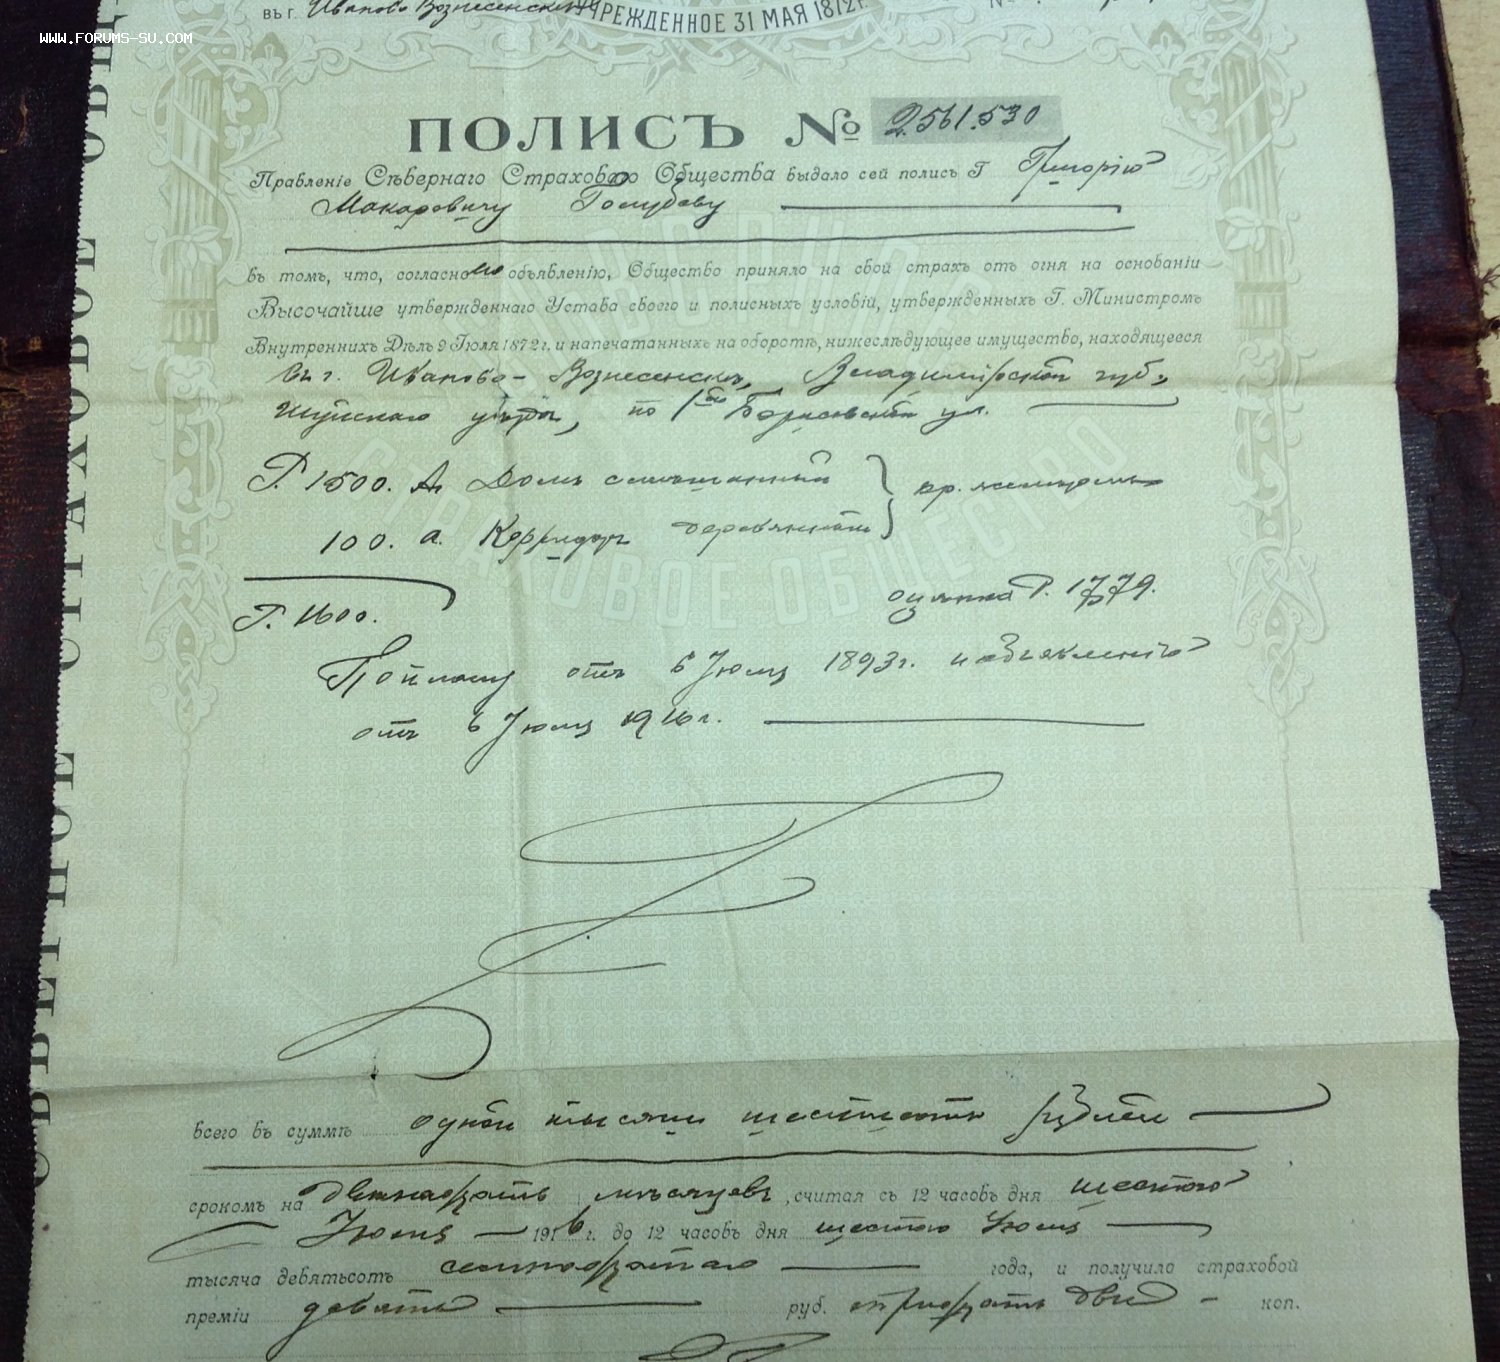 въ г. Иваново Вознесенскѣ
УЧРЕЖДЕННОЕ 31 МАЯ 1872 г.
№
WWW.FORUMS-SU.COM
СѢВЕРНОЕ СТРАХОВОЕ ОБЩ
ПОЛИСЪ № 2.561.530
Правленіе Сѣвернаго Страховаго Общества выдало сей полисъ Г Григорію
Макаровичу Голубеву
въ томъ, что, согласно его объявленію, Общество приняло на свой страхъ отъ огня на основаніи
Высочайше утвержденнаго Устава своего и полисныхъ условій, утвержденныхъ Г. Министромъ
Внутреннихъ Дѣлъ 9 Іюля 1872 г. и напечатанныхъ на оборотѣ, нижеслѣдующее имущество, находящееся
въ г. Иваново-Вознесенскѣ, Владимірской губ.,
Шуйскаго уѣзда, по 1ой Борисовской ул.
Р. 1500. А. Домъ смѣшанный } кр. желѣзомъ
100. а. Корридоръ деревянный
Р. 1600.
оцѣнка Р. 1779.
По плану отъ 6 Іюля 1893 г. и объявленію
отъ 6 Іюля 1916 г.
СТРАХОВОЕ ОБЩЕСТВО
всего въ суммѣ одной тысячи шестисотъ рублей
срокомъ на двѣнадцать мѣсяцевъ, считая съ 12 часовъ дня шестого
Іюля 1916 г. до 12 часовъ дня шестого Іюля
тысяча девятьсотъ семнадцатаго года, и получила страховой
преміи девять руб. тридцать двѣ коп.